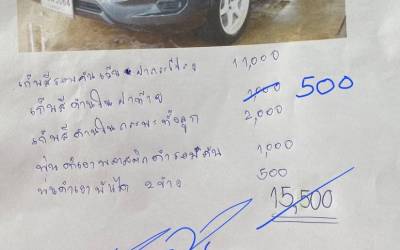 เก็บสีรอบคันเว้น ฝากระโปรง 11,000
เก็บสีด้านในฝาท้าย 1,000 500
เก็บสีด้านในกระบะทั้งลูก 2,000
พ่นดำเงาพลาสติกดำรอบคัน 1,000
พ่นดำเงาบันได 2 ข้าง 500
15,500